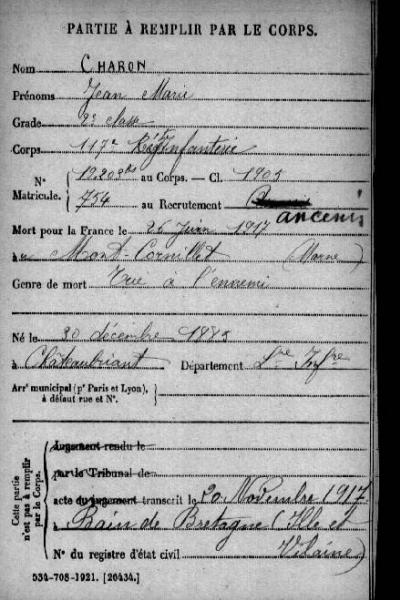 PARTIE À REMPLIR PAR LE CORPS.
Nom CHARON
Prénoms Jean Marie
Grade 2e classe
Corps 117e Régt Infanterie
N° Matricule. { 12.203 bis au Corps. — Cl. 1905
754 au Recrutement Ancenis
Mort pour la France le 26 Juin 1917
à au Mont Cornillet (Marne)
Genre de mort Tué à l'ennemi
Né le 30 décembre 1885
à Châteaubriant Département Lre Infre
Arrt municipal (pr Paris et Lyon), à défaut rue et N°.
Cette partie n'est pas à remplir par le Corps.
Jugement rendu le
par le Tribunal de
acte du jugement transcrit le 20 Novembre 1917
à Bain de Bretagne (Ille et
Vilaine)
N° du registre d'état civil
534-708-1921. [26434.]